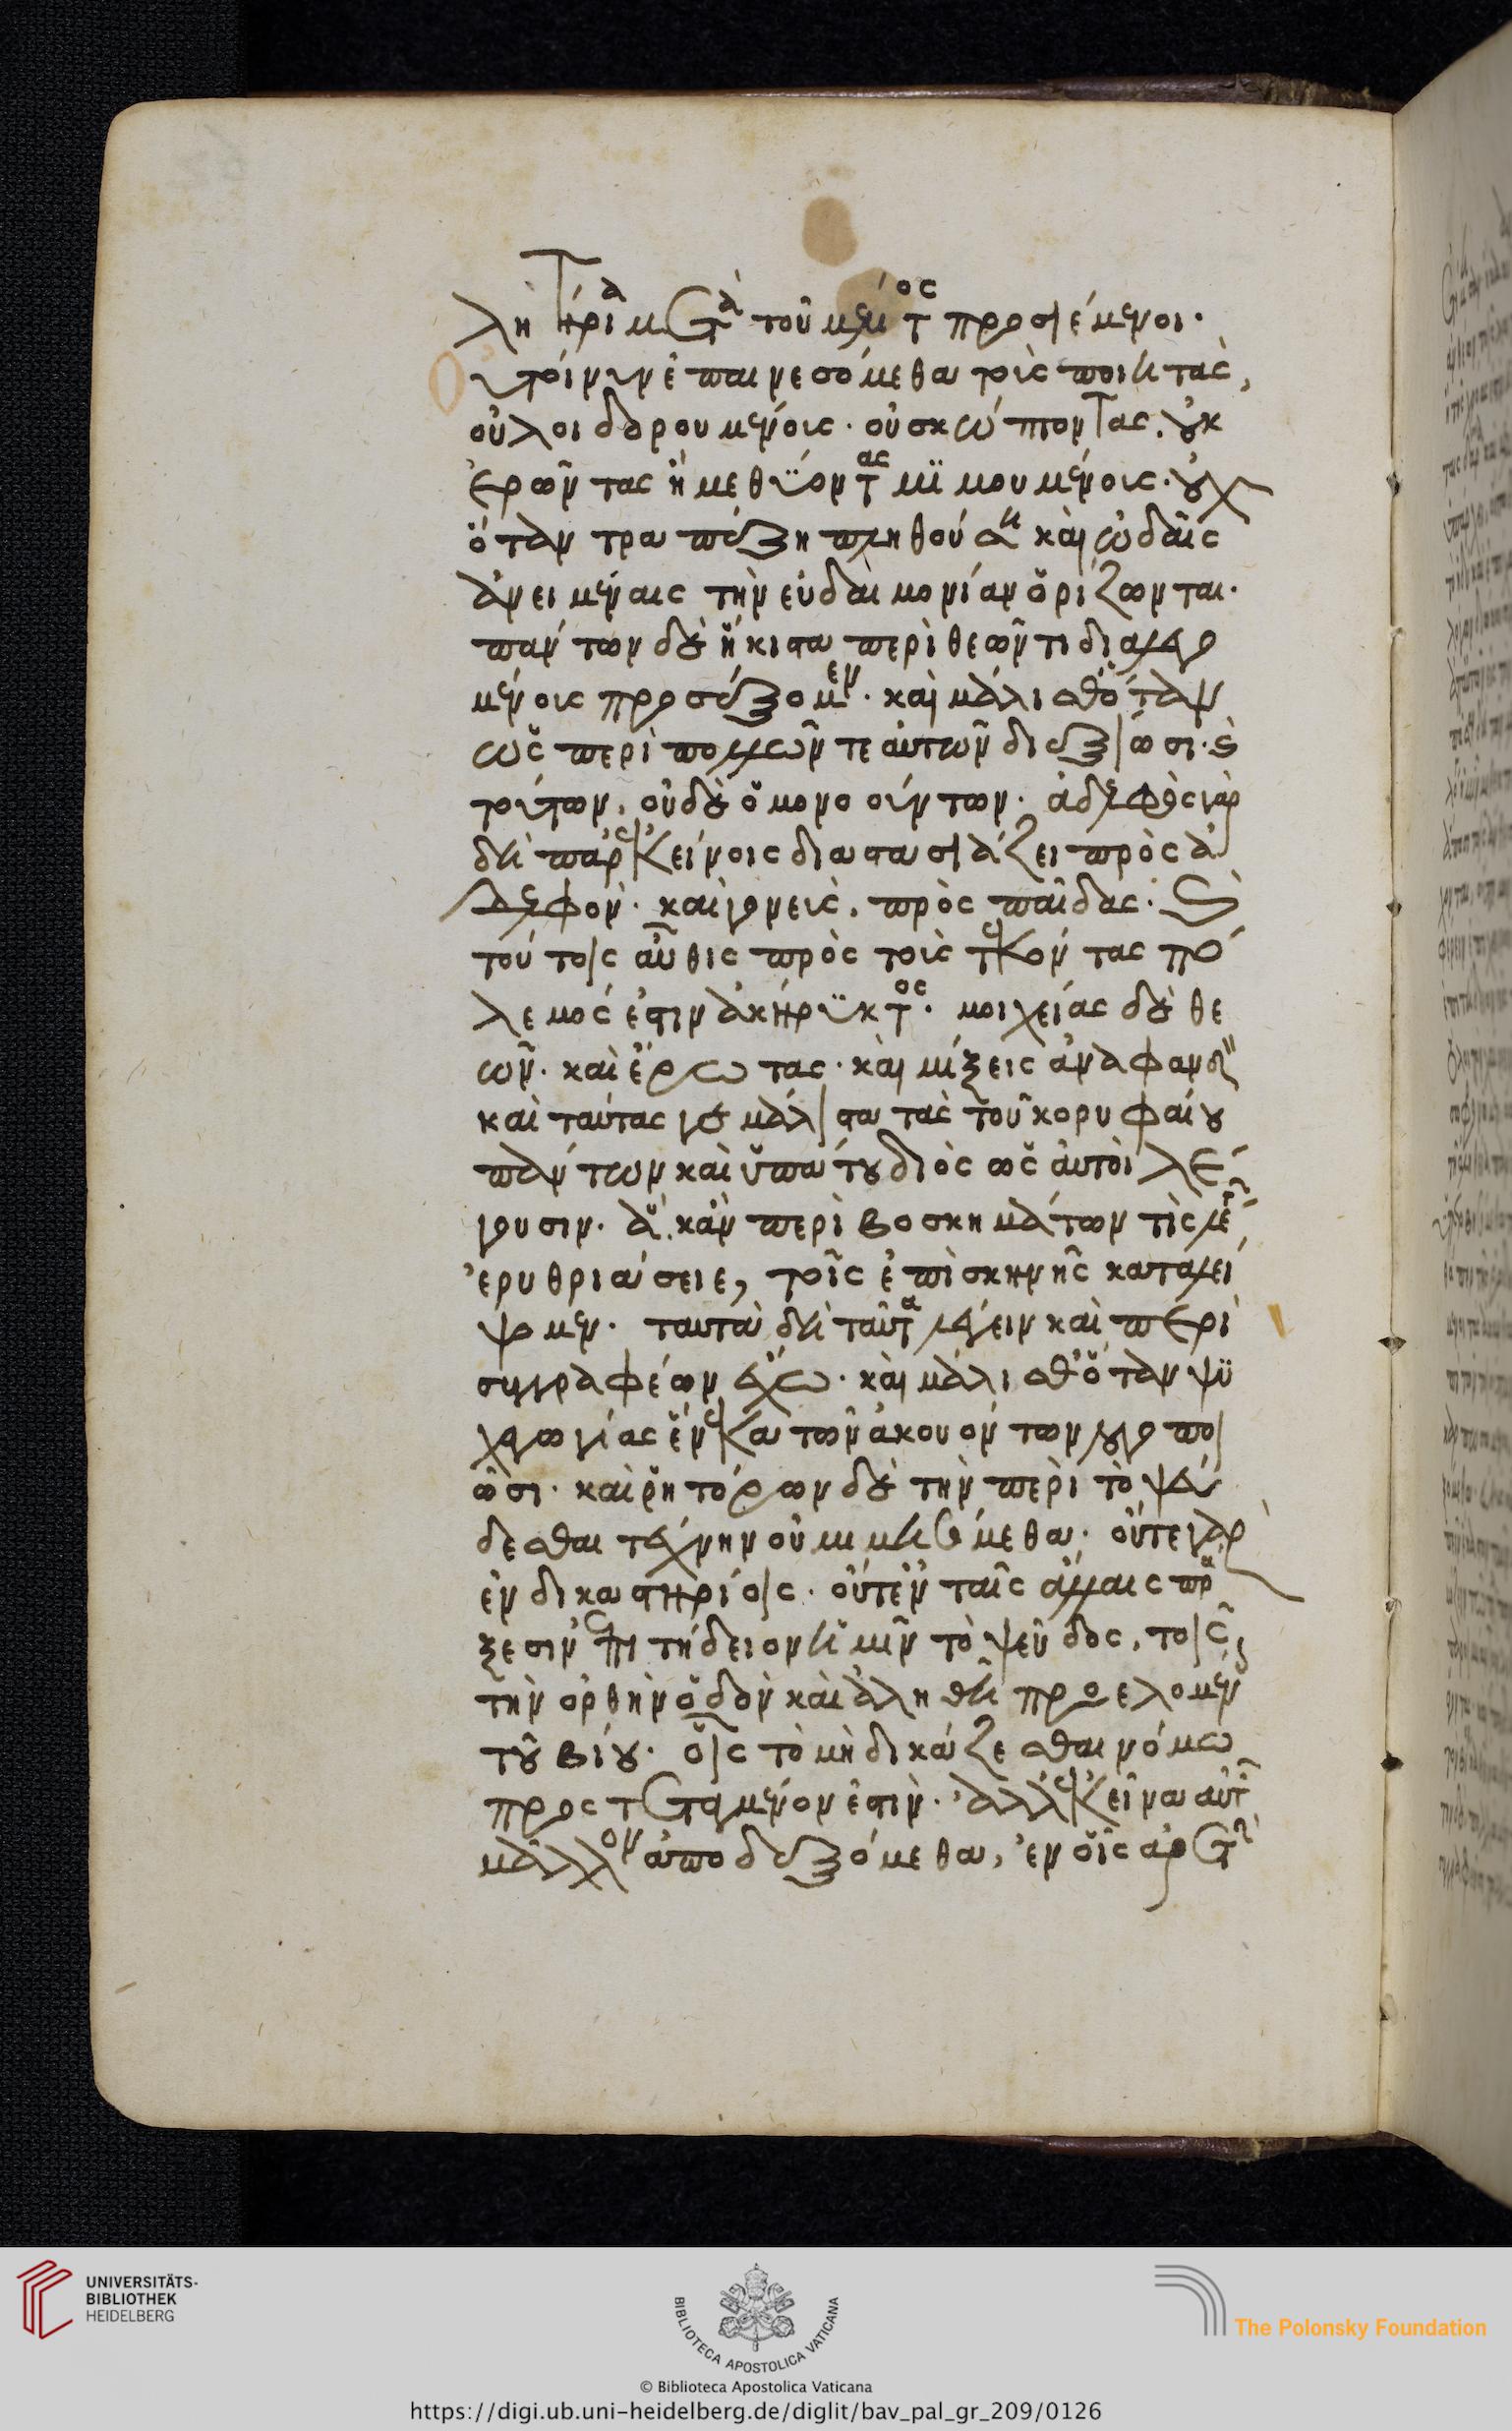 λητήρια μετὰ τοῦ μέλιτος προσιέμενοι.
οὔτ' οὖν ἐπαινεσόμεθα τοὺς ποιητὰς,
οὐ λοιδορουμένους. οὐ σκώπτοντας. οὐκ
ἐρῶντας ἢ μεθύοντας μιμουμένους. οὐχ
ὅταν τραπέζῃ πληθούσῃ καὶ ᾠδαῖς
ἀνειμέναις τὴν εὐδαιμονίαν ὁρίζωνται.
πάντων δὲ ἥκιστα περὶ θεῶν τι διαλεγο
μένοις προσέξομεν. καὶ μάλισθ' ὅταν
ὡς περὶ πολλῶν τε αὐτῶν διεξίωσι. καὶ
τούτων, οὐδὲ ὁμονοούντων. ἀδελφὸς γὰρ
δὴ παρ' ἐκείνοις διαστασιάζει πρὸς ἀ
δελφόν. καὶ γονεὺς, πρὸς παῖδας. καὶ
τούτοις αὖθις πρὸς τοὺς τεκόντας πό
λεμός ἐστιν ἀκήρυκτος. μοιχείας δὲ θε
ῶν. καὶ ἔρωτας. καὶ μίξεις ἀναφανδὸν
καὶ ταύτας γε μάλιστα τὰς τοῦ κορυφαίου
πάντων καὶ ὑπάτου διὸς ὡς αὐτοὶ λέ
γουσιν. ἃ, κἂν περὶ βοσκημάτων τὶς λέγων
ἐρυθριάσειε, τοῖς ἐπὶ σκηνῆς καταλεί
ψομεν. ταυτὰ δὴ ταῦτα λέγειν καὶ περὶ
συγγραφέων ἔχω. καὶ μάλισθ' ὅταν ψυ
χαγωγίας ἕνεκα τῶν ἀκουόντων λογοποι
ῶσι. καὶ ῥητόρων δὲ τὴν περὶ τὸ ψεύ
δεσθαι τέχνην οὐ μιμησόμεθα. οὔτε γὰρ
ἐν δικαστηρίοις. οὔτ' ἐν ταῖς ἄλλαις πρά
ξεσιν ἐπιτήδειον ἡμῖν τὸ ψεῦδος, τοῖς
τὴν ὀρθὴν ὁδὸν καὶ ἀληθῆ προελομένοις
τοῦ βίου. οἷς τὸ μὴ δικάζεσθαι νόμῳ
προστεταγμένον ἐστίν. ἀλλ' ἐκεῖνα αὐτῶν
μᾶλλον ἀποδεξόμεθα, ἐν οἷς ἀρετὴν
UNIVERSITÄTS-
BIBLIOTHEK
HEIDELBERG
BIBLIOTECA APOSTOLICA VATICANA
The Polonsky Foundation
© Biblioteca Apostolica Vaticana
https://digi.ub.uni-heidelberg.de/diglit/bav_pal_gr_209/0126